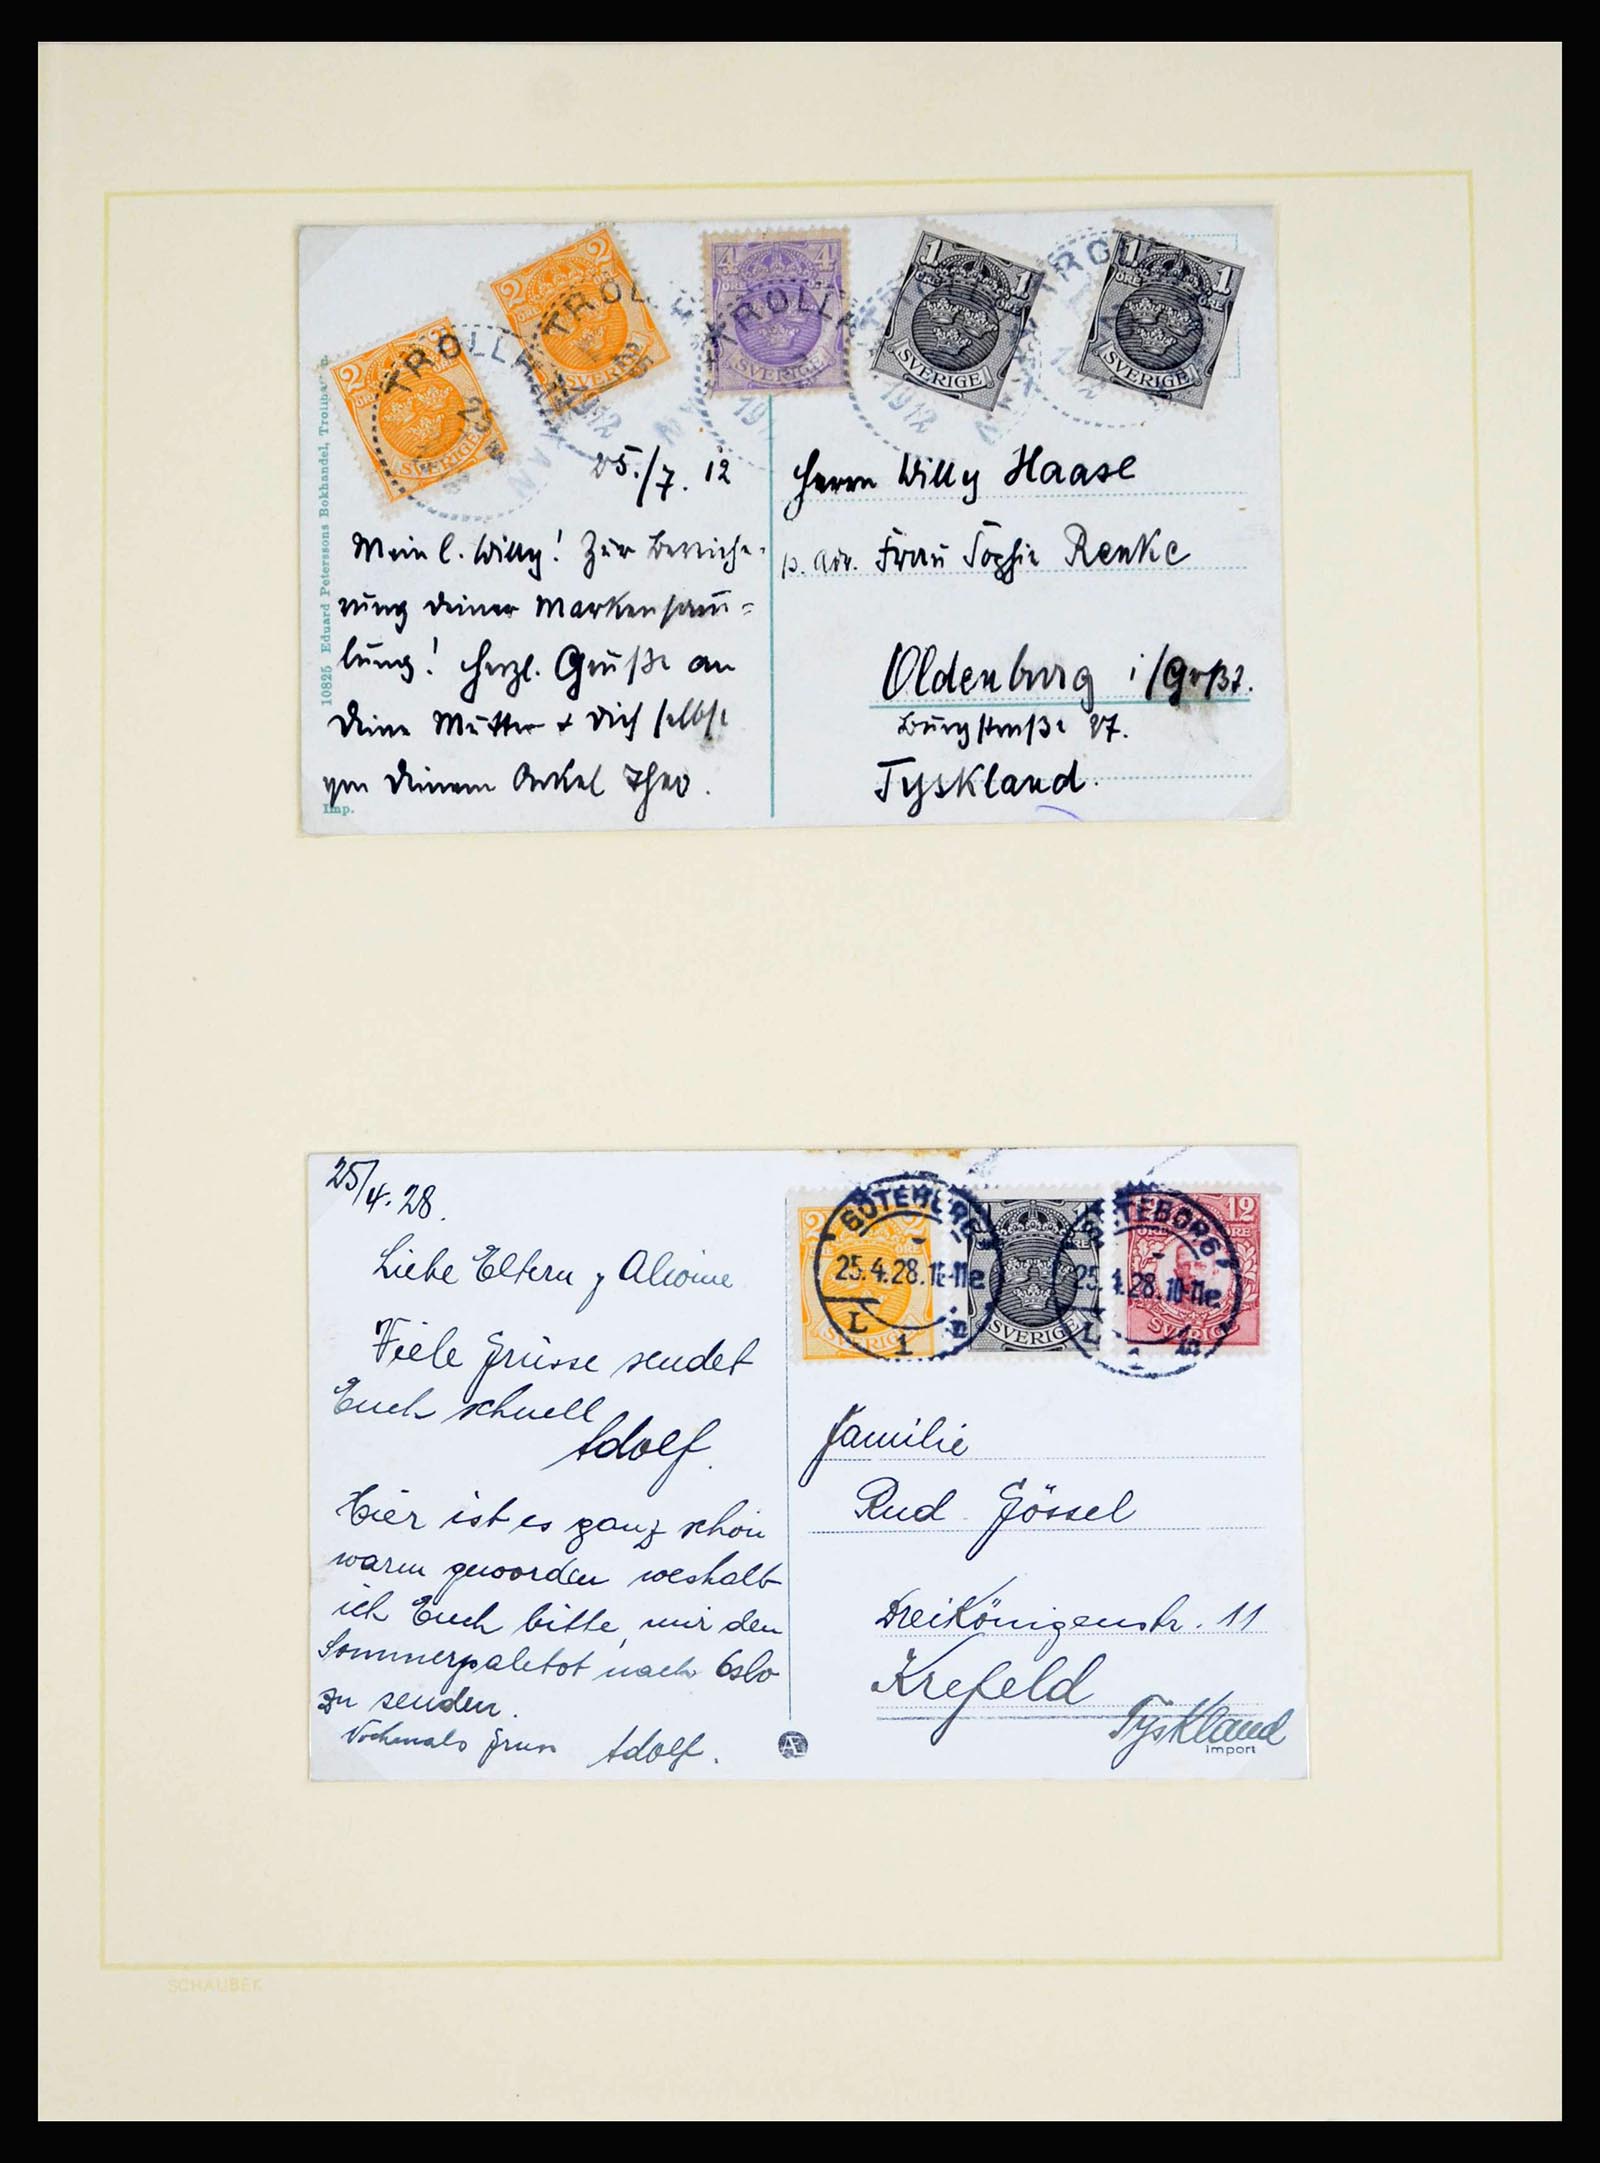 2 2
ÖRE ÖRE
SVERIGE
TROLLHÄTTAN
2 2
ÖRE ÖRE
SVERIGE
1912
4 4
ÖRE ÖRE
SVERIGE
TROLLH
1 1
ÖRE ÖRE
SVERIGE
1912
1 1
ÖRE ÖRE
SVERIGE
10825 Eduard Peterssons Bokhandel, Trollhättan.
Imp.
25./7. 12
Mein l. Willy! Zur Bereiche-
rung deiner Markensam̄=
lung! Herzl. Grüße an
Deine Mutter + Dich selbst
von Deinem Onkel Theo.
Herrn Willy Haase
p. Adr. Frau Sophie Renke
Oldenburg i/Großh.
Burgstraße 27.
Tyskland.
25/4. 28.
Liebe Eltern
Viele Grüsse sendet
Euch schnell
Adolf.
Hier ist es ganz schön
warm geworden weshalb
ich Euch bitte, mir den
Sommerpaletot nach Oslo
zu senden.
Nochmals Gruss Adolf.
AE
2 2
ÖRE
SVERIGE
GÖTEBORG
25.4.28.10-11e
L 1 n
SVERIGE
GÖTEBORG
25.4.28.10-11e
L 1 n
12
ÖRE ÖRE
SVERIGE
Familie
Rud. Gössel
Dreikönigenstr. 11
Krefeld
Tyskland
Import
SCHAUBEK